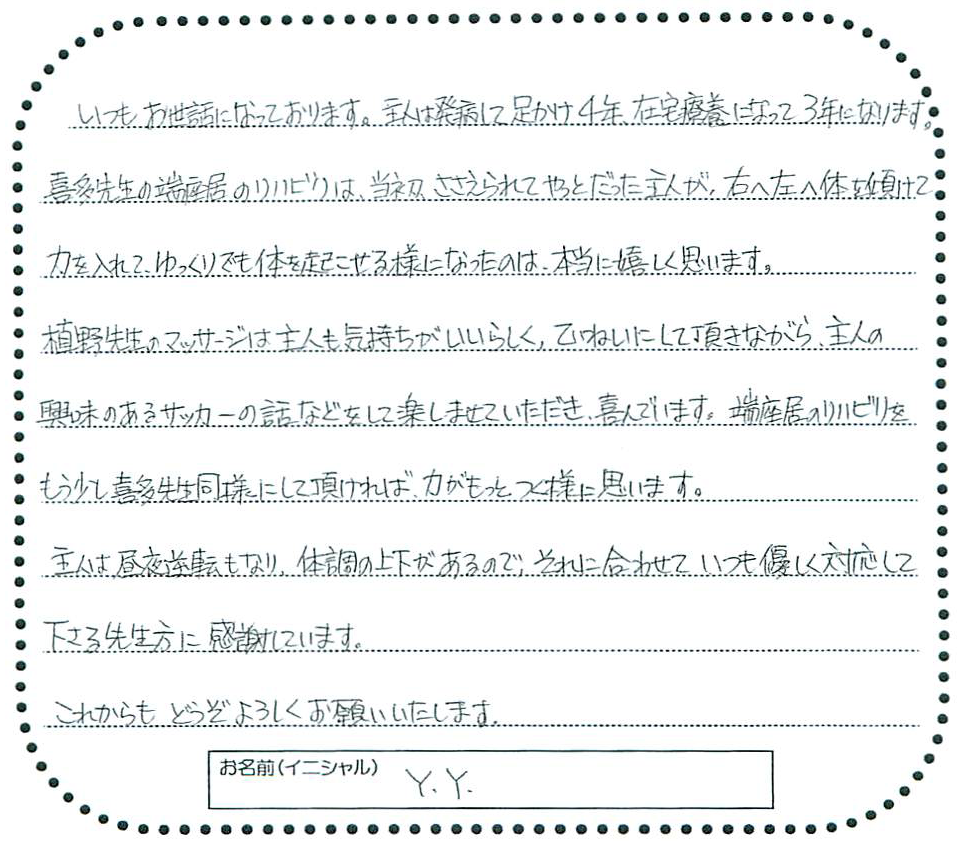 いつもお世話になっております。主人は発病して足かけ4年、在宅療養になって3年になります。
喜多先生の端座居のリハビリは、当初、ささえられてやっとだった主人が、右へ左へ体を傾けて
力を入れて、ゆっくりでも体を起こせる様になったのは、本当に嬉しく思います。
植野先生のマッサージは主人も気持ちがいいらしく、ていねいにして頂きながら、主人の
興味のあるサッカーの話などをして楽しませていただき、喜んでいます。端座居のリハビリを
もう少し喜多先生同様にして頂ければ、力がもっとつく様に思います。
主人は昼夜逆転もなり、体調の上下があるので、それに合わせていつも優しく対応して
下さる先生方に感謝しています。
これからもどうぞよろしくお願いいたします。
お名前(イニシャル) Y.Y.